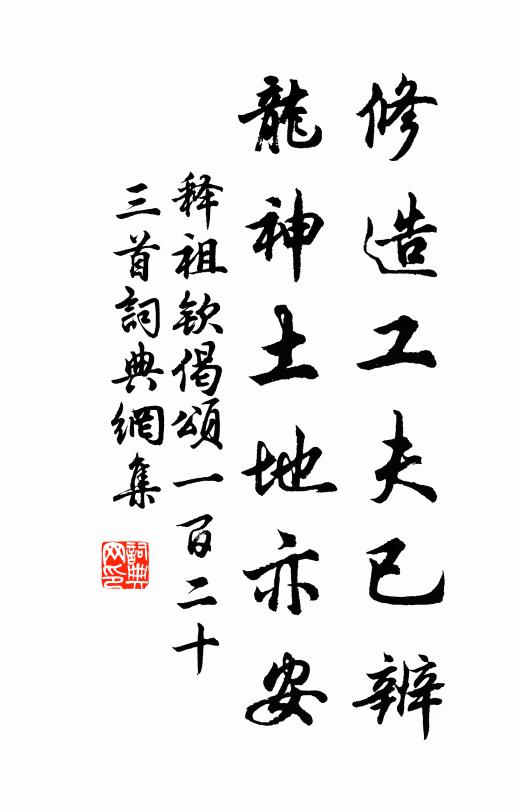 修造工夫已辨
龍神土地亦安
释祖钦偈頌一百二十
三首詞典網集
詞典
网印